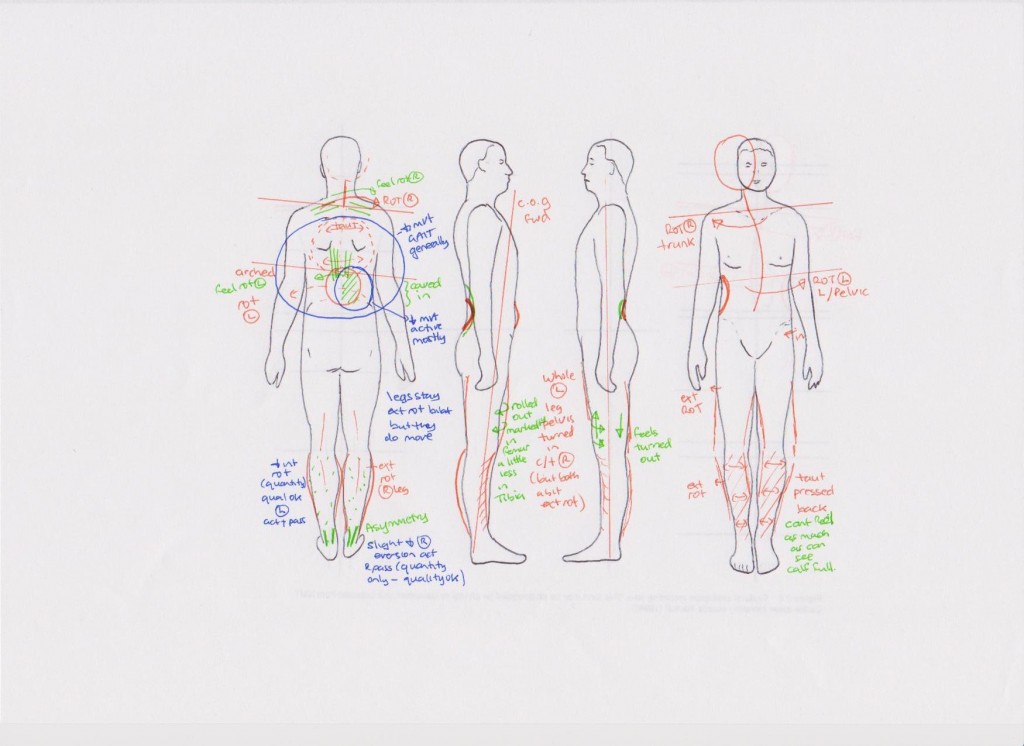 feel rot (R)
ROT (R)
↓ mvt
GAIT
generally
arched
feel rot (L)
rot
(L)
caved
in
↓ mvt
active
mostly
legs stay
ext rot bilat
but they
do move
↓ int
rot
(quantity)
qual ok
(L)
act + pass
ext
rot
(R) leg
Asymmetry
Slight ↓ (R)
eversion act
& pass (quantity
only - quality ok)
c.o.g
fwd
rolled
out
marked
in
femur
a little
less
in
Tibia
whole
(L)
leg
pelvis
turned
in
c/t (R)
(but both
a bit
ext rot)
feels
turned
out
ROT (R)
trunk
ROT (L)
L/Pelvic
in
ext
ROT
ext
rot
taut
pressed
back
cant feel
as much
as can
see
calf full.